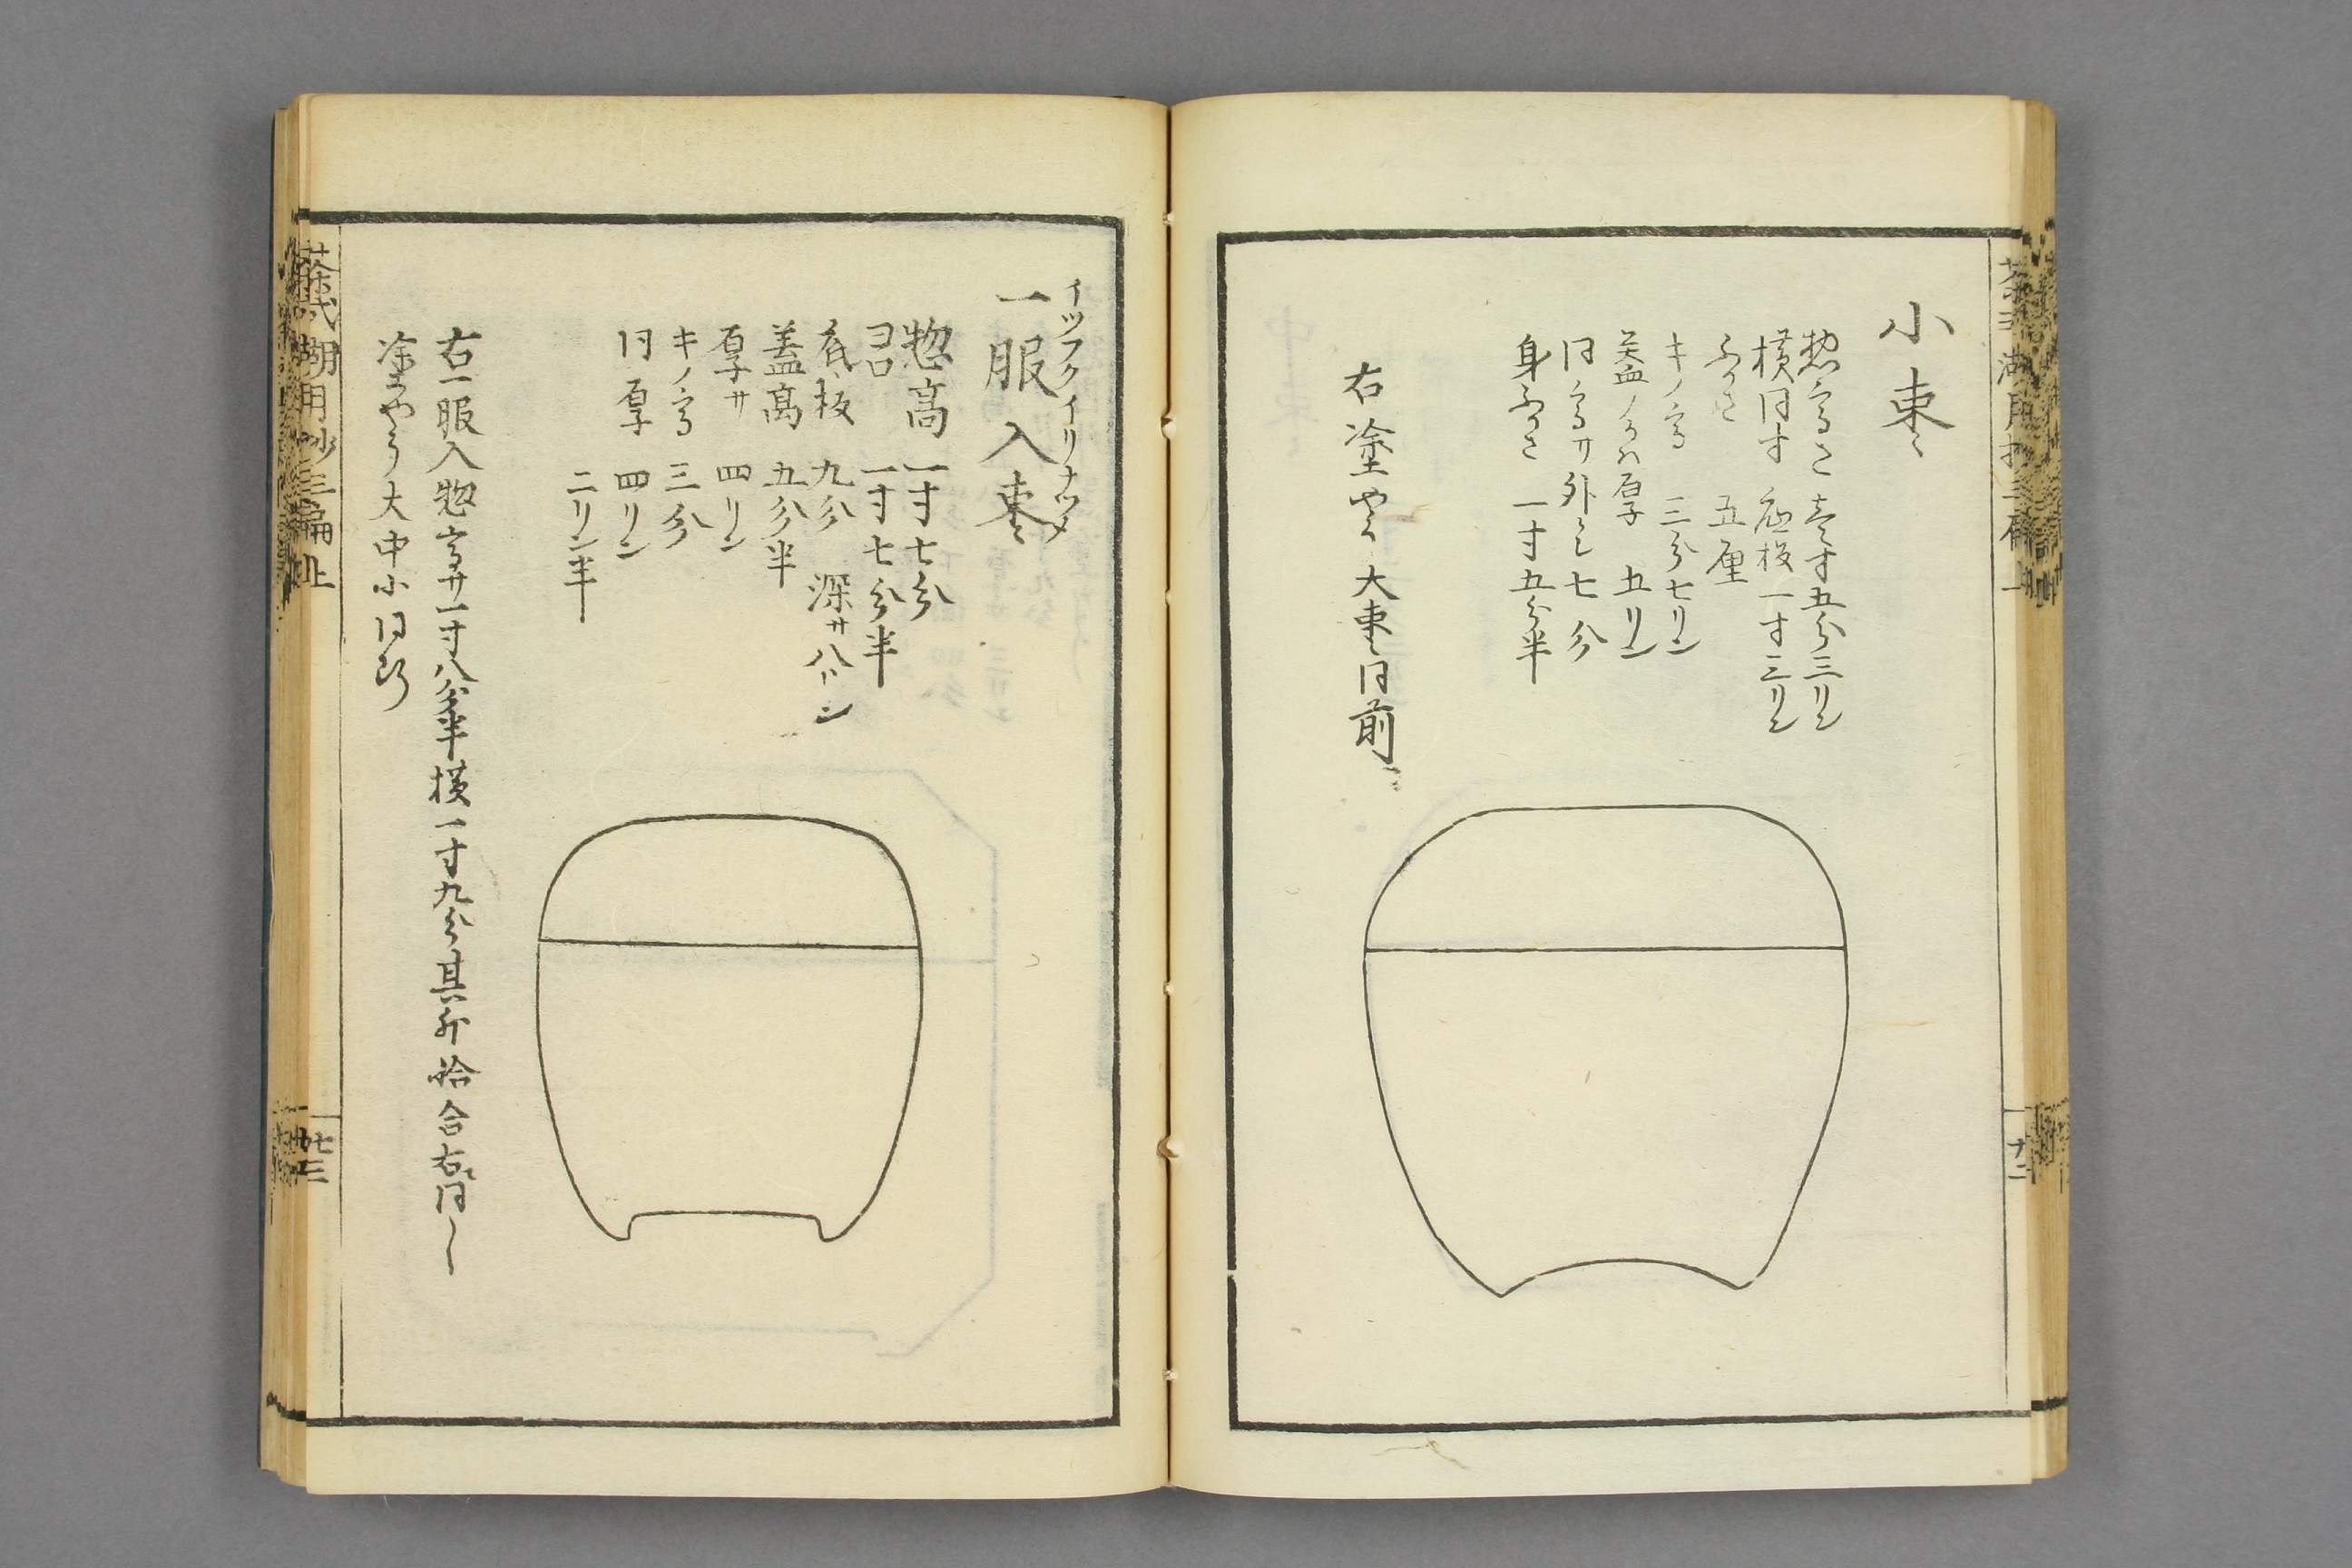 小棗
惣高さ壱寸五分三リン
横同寸 底板一寸三リン
ふかさ 五厘
キノ高 三分七リン
蓋ノ
厚 五リン
同高サ外に七分
身ふかさ 一寸五分半
右塗やう大棗同前
イツフクイリナツメ
一服入棗
惣高 一寸七分
ヨコ 一寸七分半
底板 九分 深サ八リン
蓋高 五分半
厚サ 四リン
キノ高 三分
同厚 四リン
二リン半
右一服入惣高サ一寸八分半横一寸九分其外拾合右同し
塗やう大中小同断
茶式湖月抄三編上
廿三